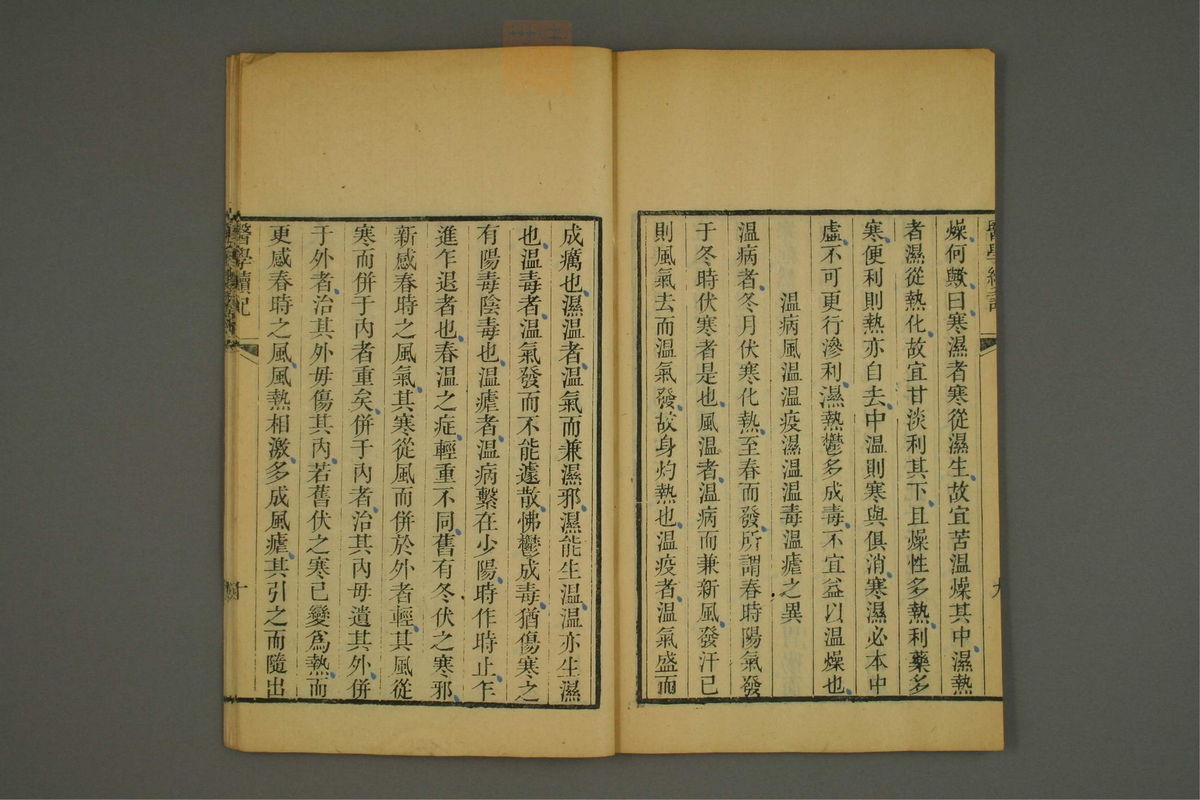 燥何歟曰寒濕者寒從濕生故宜苦温燥其中濕熱
者濕從熱化故宜甘淡利其下且燥性多熱利藥多
寒便利則熱亦自去中温則寒與俱消寒濕必本中
虚不可更行滲利濕熱鬱多成毒不宜益以温燥也
温病風温温疫濕温温毒温瘧之異
温病者冬月伏寒化熱至春而發所謂春時陽氣發
于冬時伏寒者是也風温者温病而兼新風發汗已
則風氣去而温氣發故身灼熱也温疫者温氣盛而
成癘也濕温者温氣而兼濕邪濕能生温温亦生濕
也温毒者温氣發而不能遽散怫鬱成毒猶傷寒之
有陽毒陰毒也温瘧者温病繫在少陽時作時止乍
進乍退者也春温之症輕重不同舊有冬伏之寒邪
新感春時之風氣其寒從風而併於外者輕其風從
寒而併于内者重矣併于内者治其内毋遺其外併
于外者治其外毋傷其内若舊伏之寒已變爲熱而
更感春時之風風熱相激多成風瘧其引之而隨出
醫學讀記
十